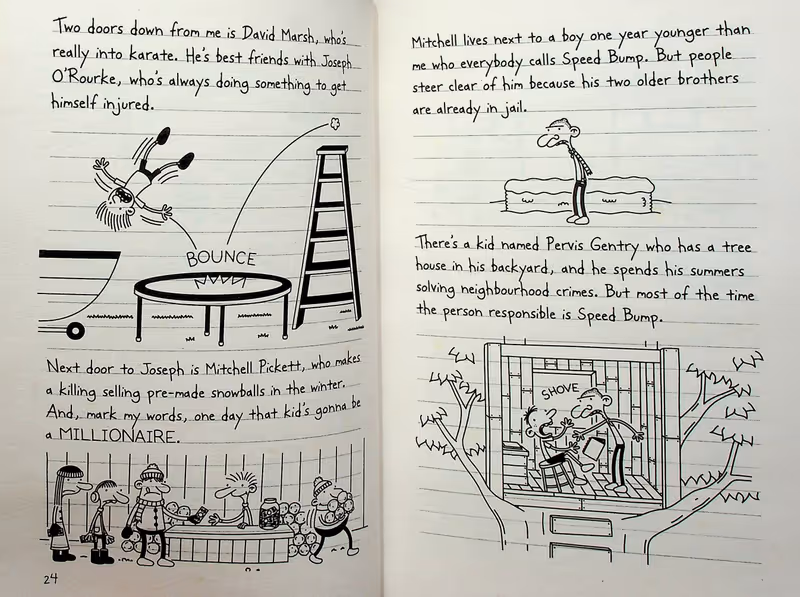 Two doors down from me is David Marsh, who's
really into karate. He's best friends with Joseph
O'Rourke, who's always doing something to get
himself injured.
BOUNCE
Next door to Joseph is Mitchell Pickett, who makes
a killing selling pre-made snowballs in the winter.
And, mark my words, one day that kid's gonna be
a MILLIONAIRE.
24
Mitchell lives next to a boy one year younger than
me who everybody calls Speed Bump. But people
steer clear of him because his two older brothers
are already in jail.
There's a kid named Pervis Gentry who has a tree
house in his backyard, and he spends his summers
solving neighbourhood crimes. But most of the time
the person responsible is Speed Bump.
SHOVE